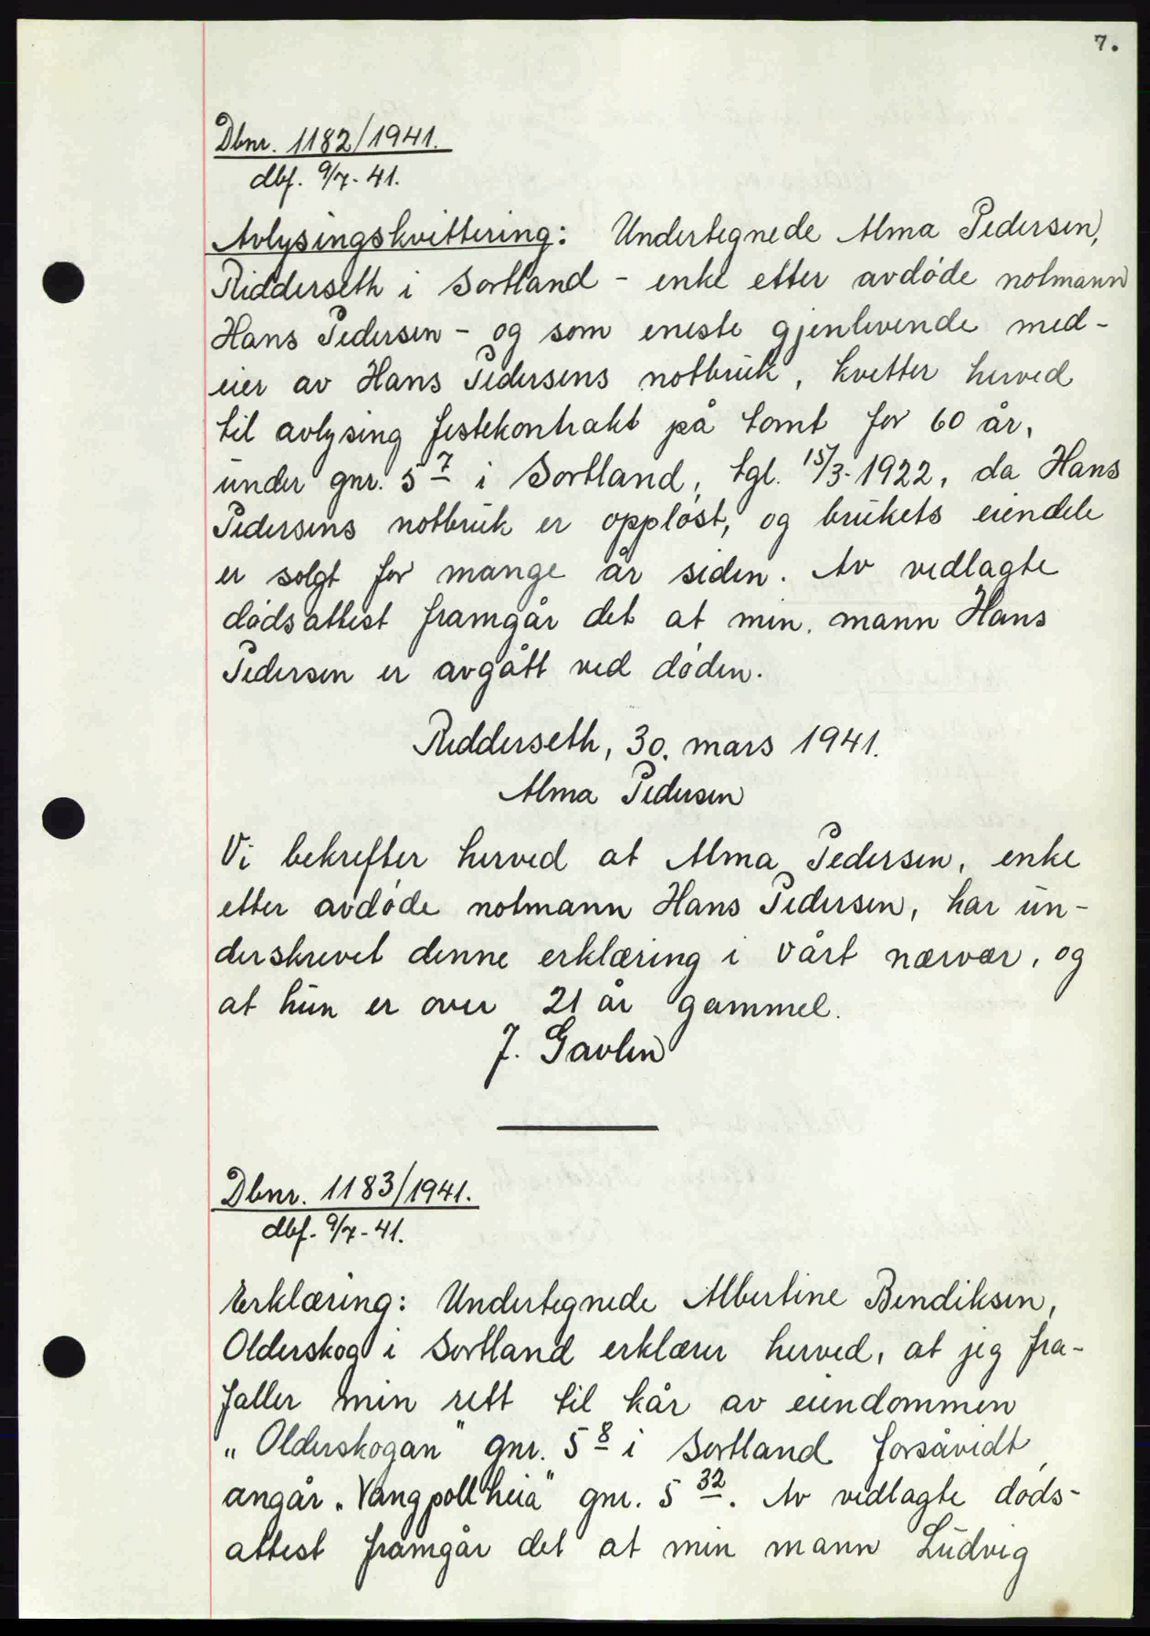 7.
Dbnr. 1182/1941.
dbf. 9/7-41.
Avlysingskvittering: Undertegnede Alma Pedersen,
Ridderseth i Sortland - enke etter avdøde notmann
Hans Pedersen - og som eneste gjenlevende med-
eier av Hans Pedersens notbruk, kvitter herved
til avlysing festekontrakt på tomt for 60 år,
under gnr. 5 7 i Sortland, tgl. 15/3-1922, da Hans
Pedersens notbruk er oppløst, og brukets eiendele
er solgt for mange år siden. Av vedlagte
dødsattest framgår det at min. mann Hans
Pedersen er avgått ved døden.
Ridderseth, 30. mars 1941.
Alma Pedersen
Vi bekrefter herved at Alma Pedersen, enke
etter avdøde notmann Hans Pedersen, har un-
derskrevet denne erklæring i vårt nærvær, og
at hun er over 21 år gammel.
J. Gavlen
Dbnr. 1183/1941.
dbf. 9/7-41.
Erklæring: Undertegnede Albertine Bendiksen,
Olderskog i Sortland erklærer herved, at jeg fra-
faller min rett til kår av eiendommen
„Olderskogan" gnr. 5 8 i Sortland forsåvidt
angår „Vangpollheia" gnr. 5 32. Av vedlagte døds-
attest framgår det at min mann Ludvig